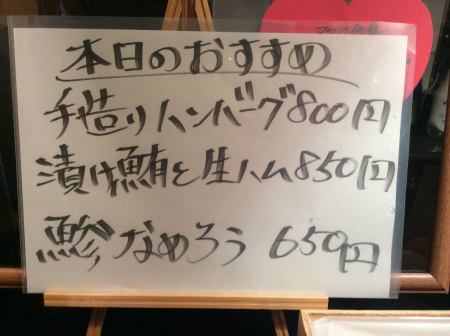 本日のおすすめ
手造りハンバーグ800円
漬け鮪と生ハム850円
鯵なめろう 650円